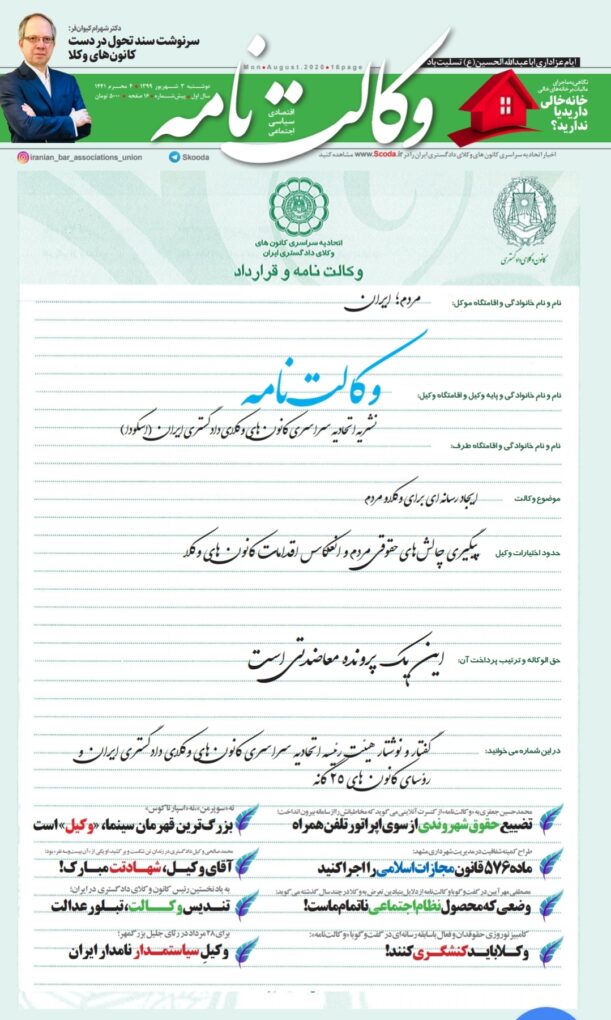 دکتر شهرام کیوان‌فر:
سرنوشت سند تحول در دست
کانون‌های وکلا
ایام عزاداری اباعبدالله الحسین (ع) تسلیت باد
Mon●August.2020●16page
دوشنبه ۳ شهریور ۱۳۹۹ ● ۴ محرم ۱۴۴۲
سال اول ● پیش‌شماره ۱ ● ۱۶ صفحه ● ۵۰۰۰ تومان
اقتصادی
سیاسی
اجتماعی
وکالت نامه
نگاهی به ماجرای
مالیات بر خانه‌های خالی
خانه خالی
دارید یا
ندارید؟
iranian_bar_associations_union
Skooda
اخبار اتحادیه سراسری کانون های وکلای دادگستری ایران را در www.Scoda.ir مشاهده کنید
اتحادیه سراسری کانون های
وکلای دادگستری ایران
کانون وکلای دادگستری
وکالت نامه و قرارداد
نام و نام خانوادگی و اقامتگاه موکل:
مردم؛ ایران
نام و نام خانوادگی و پایه وکیل و اقامتگاه وکیل:
وکالت نامه
نشریه اتحادیه سراسری کانون های وکلای دادگستری ایران (اسکودا)
نام و نام خانوادگی و اقامتگاه طرف:
موضوع وکالت
ایجاد رسانه ای برای وکلا و مردم
حدود اختیارات وکیل
پیگیری چالش های حقوقی مردم و انعکاس اقدامات کانون های وکلا
حق الوکاله و ترتیب پرداخت آن:
این یک پرونده معاضدتی است
در این شماره می خوانید:
گفتار و نوشتار هیئت رئیسه اتحادیه سراسری کانون های وکلای دادگستری ایران و
رؤسای کانون های ۲۵ گانه
محمدحسین جعفری به «وکالت‌نامه» از کنسرت آنلاینی می‌گوید که مخاطبانش را از سامانه بیرون انداخت؛
تضییع حقوق شهروندی از سوی اپراتور تلفن همراه
نه «سوپرمن»، نه «اسپارتاکوس»
بزرگ‌ترین قهرمان سینما، «وکیل» است
طراح کمیته شفافیت در مدیریت شهرداری مشهد:
ماده ۵۷۶ قانون مجازات اسلامی را اجرا کنید
آقای وکیل، شهادتت مبارک!
مصطفی مهرآیین در گفت‌وگو با وکالت‌نامه از دلایل بنیادین تعرض به وکلا در چند سال گذشته می‌گوید:
وضعی که محصول نظام اجتماعی ناتمام ماست!
به یاد نخستین رئیس کانون وکلای دادگستری در ایران؛
تندیس وکالت، تبلور عدالت
کامبیز نوروزی حقوقدان و فعال باسابقه رسانه‌ای در گفت‌وگو با «وکالت‌نامه»:
وکلا باید کنشگری کنند!
برای ۲۸ مرداد در رثای جلیل بزرگمهر؛
وکیل سیاستمدار نامدار ایران